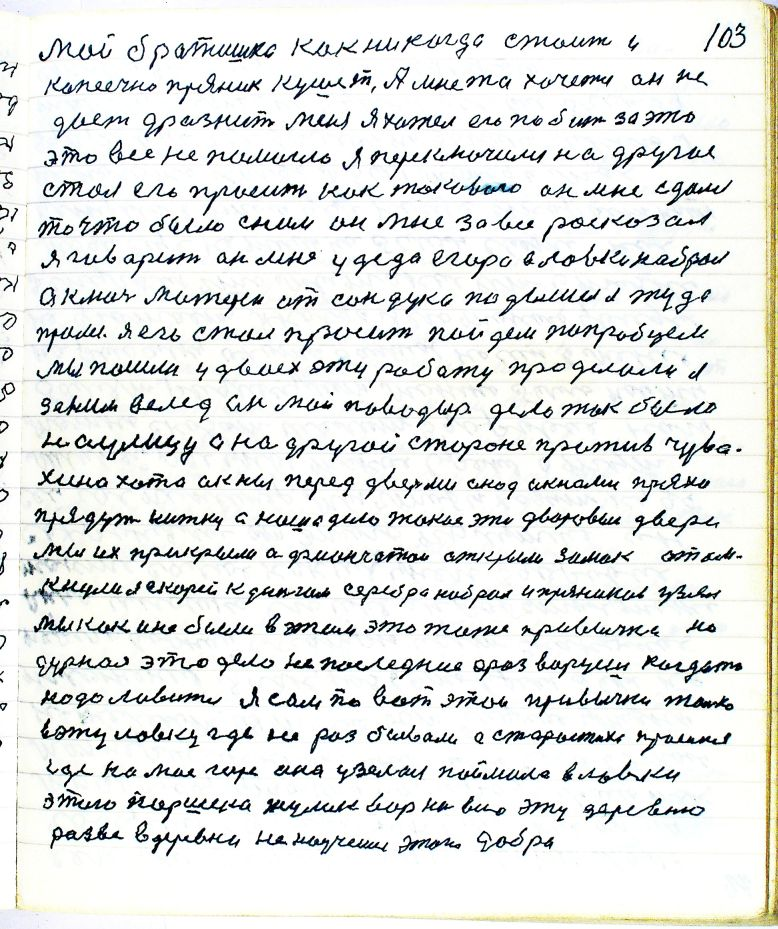 103
Мой братишка как никогда стоит и
копеечно пряник кушает, А мне та хочети он не
дает дразнит меня я хотел его побит за это
это все не помогло я переключили на другое
стал его просить как такового он мне сдал
то что было с ним он мне за все росказал
я говарит он мне у деда егора в ловки набрал
а ключ матери от сондука подошил я туда
я его стал просит пойдем попробуем
мы пошли у двоех эту работу проделали я
заним велед он мой поводыр дело так было
на аулицу а на другой стороне против чува-
хина хата окны перед дверми снод акнами пряха
прядут нитку а наша дело такое эти дворовыи двери
мы их прикрыли а открыли замок отом-
кнули я скорей к серебра набрал и пряников узял
мы как и не были в этом это тоже привычка но
дурная это дело не последние араз варуеш когдато
надо ловити я сам по вот этой привычки толко
в эту ловку где не раз бывали а старостиха
где на мое горе она узелал поймала в ловки
этого паршека жулик вор на всю эту деревню
разве в деревни не научеш этого добра